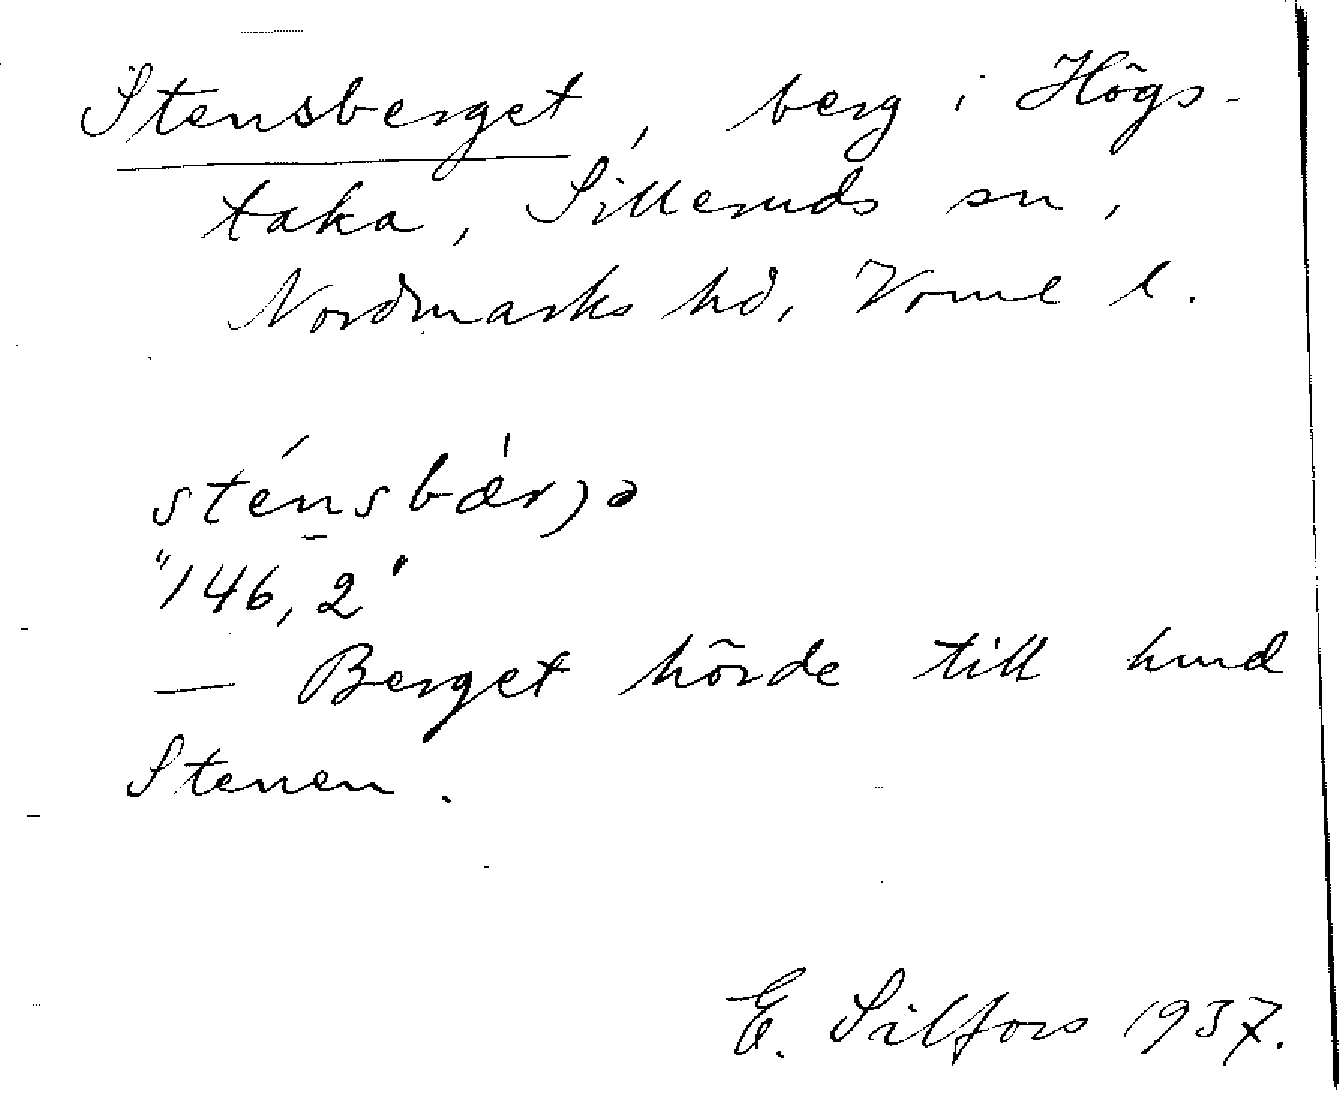 Stensberget, berg i Högs-
taka, Silleruds sn,
Nordmarks hd, Verml l.
sténsbærjə
"146,2"
— Berget hörde till hmd
Stenen.
E. Silfors 1937.